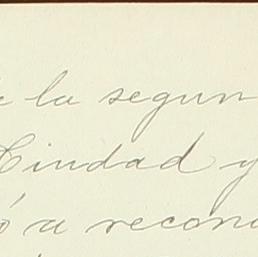 la segun
Ciudad y
ó a recono